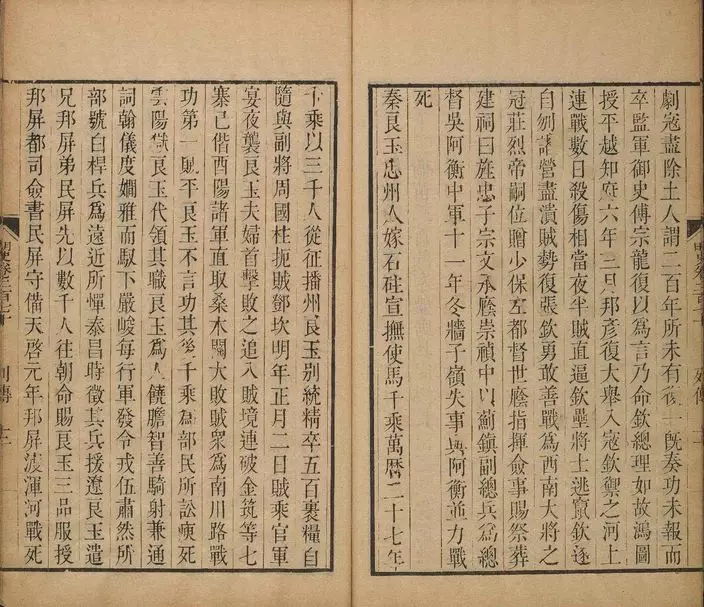 劇寇盡除土人謂二百年所未有後旣奏功未報而
卒監軍御史傅宗龍復以爲言乃命欽總理如故鴻圖
授平越知府六年三月邦彥復大舉入寇欽禦之河上
連戰數日殺傷相當夜半賊直逼欽壘將士逃竄欽遂
自刎諸營盡潰賊勢復張欽勇敢善戰爲西南大將之
冠莊烈帝嗣位贈少保左都督世廕指揮僉事賜祭葬
建祠曰旌忠子宗文承廕崇禎中以薊鎮副總兵爲總
督吳阿衡中軍十一年冬牆子嶺失事與阿衡並力戰
死
秦良玉忠州人嫁石砫宣撫使馬千乘萬曆二十七年
千乘以三千人從征播州良玉別統精卒五百裹糧自
隨與副將周國柱扼賊鄧坎明年正月二日賊乘官軍
宴夜襲良玉夫婦首擊敗之追入賊境連破金筑等七
寨已偕酉陽諸軍直取桑木關大敗賊眾爲南川路戰
功第一賊平良玉不言功其後千乘爲部民所訟瘐死
雲陽獄良玉代領其職良玉爲人饒膽智善騎射兼通
詞翰儀度嫺雅而馭下嚴峻每行軍發令戎伍肅然所
部號白桿兵爲遠近所憚泰昌時徵其兵援遼良玉遣
兄邦屏弟民屏先以數千人往朝命賜良玉三品服授
邦屏都司僉書民屏守備天啓元年邦屏渡渾河戰死
列傳